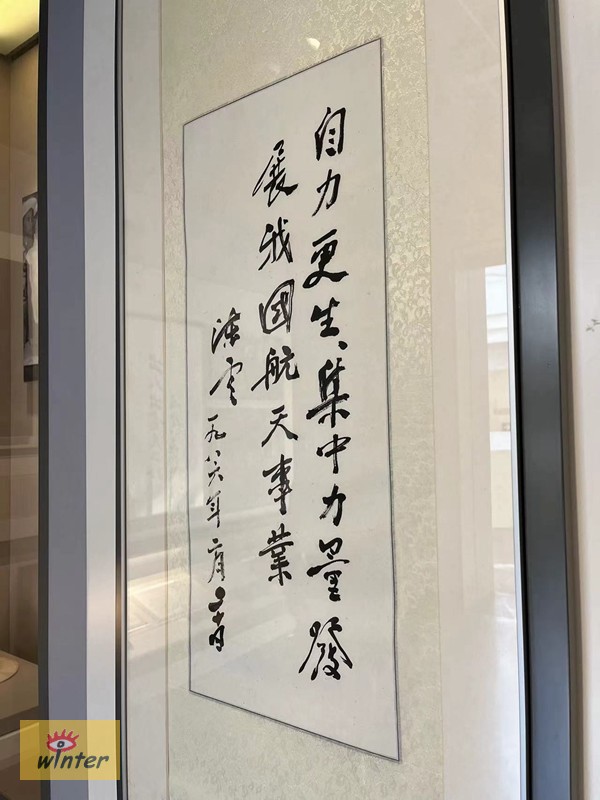 自力更生、集中力量發
展我國航天事業
陳雲 一九八六年二月
winter